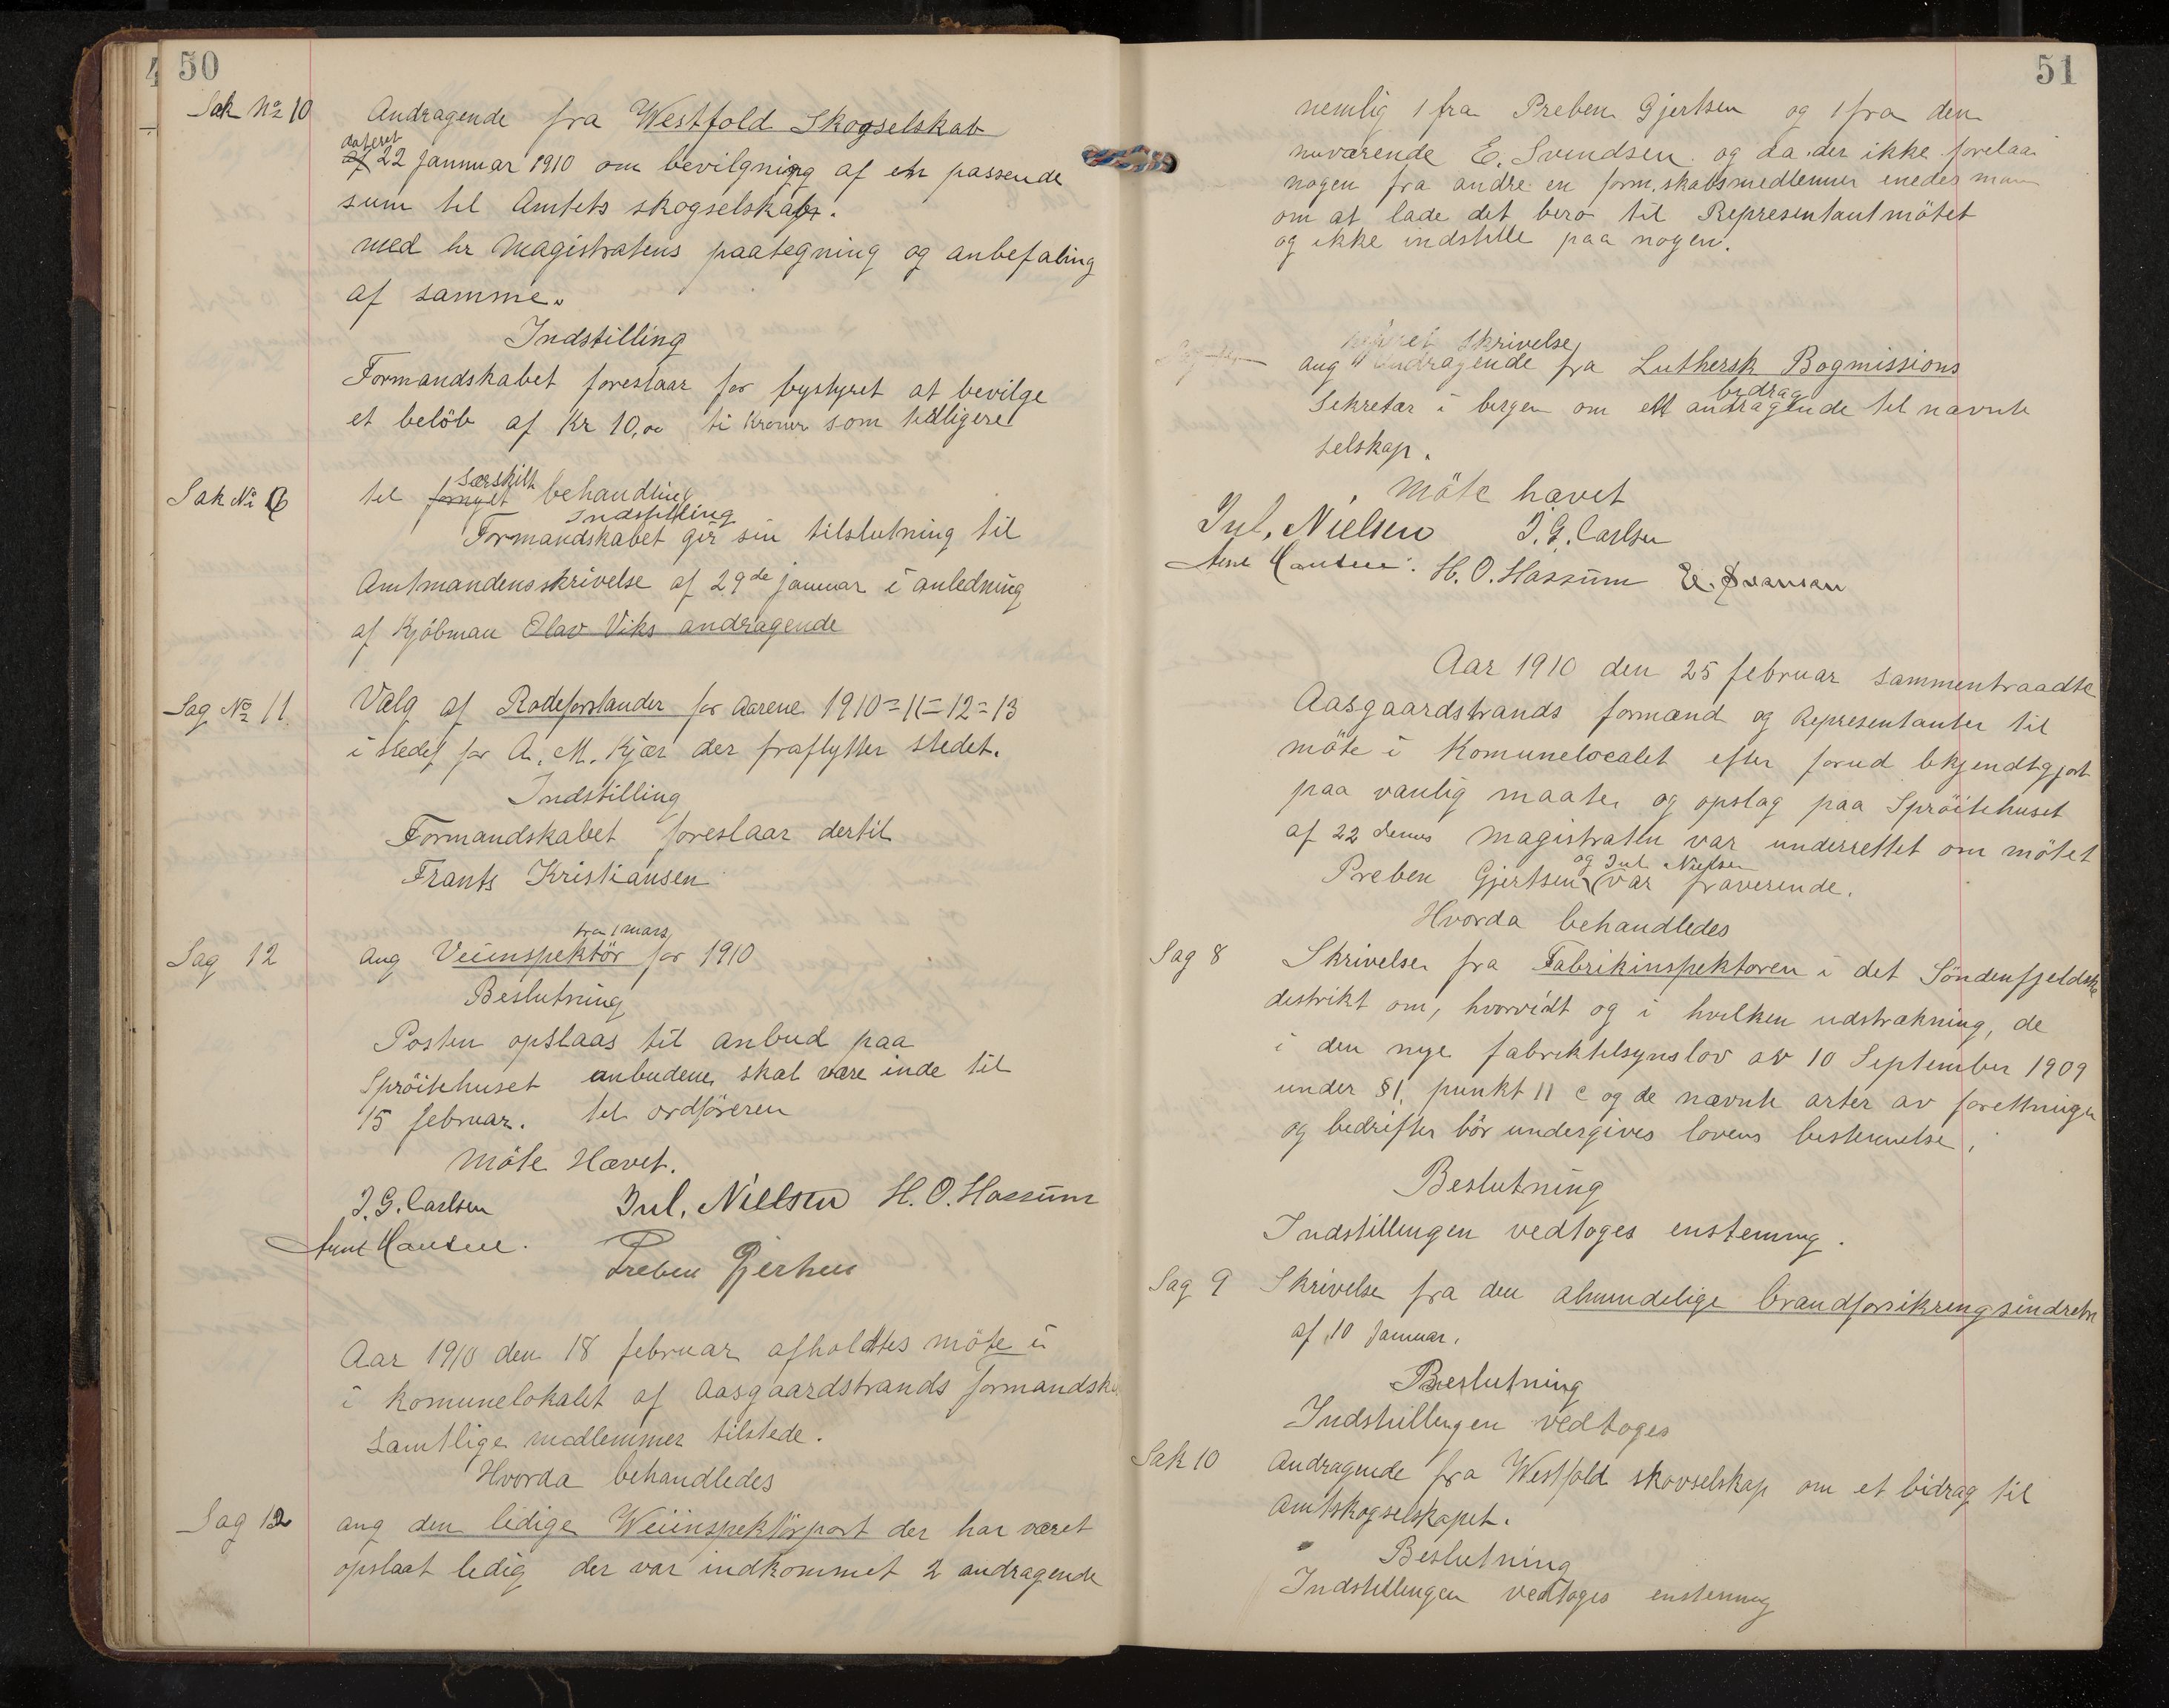 50
Sak No 10 Andragende fra Westfold Skogselskab
dateret
af 22 Januar 1910 om bevilgning af en passende
sum til Amtets skogselskab.
med hr Magistratens paategning og anbefaling
af samme.
Indstilling
Formandskabet foreslaar for bystyret at bevilge
et belöb af Kr 10,00 ti Kroner som tidligere
særskilt
Sak No til fornyet behandling
Indstilling
Formandskabet gir sin tilslutning til
Amtmandens skrivelse af 29de januar i anledning
af Kjöbman Olav Viks andragende
Sag No 11. Valg af Rodeforstander for Aarene 1910=11=12=13
i stedet for A. M. Kjær der fraflytter stedet.
Indstilling
Formandskabet foreslaar dertil
Frants Kristiansen
fra 1 mars
Sag 12 ang Veiinspektör for 1910
Beslutning
Posten opslaas til anbud paa
Spröitehuset anbudene skal være inde til
15 februar. til ordföreren
Möte Hævet.
J. G. Carlsen Jul. Nielsen H. O. Hassum
Arnt Hansen.
Preben Gjertsen
Aar 1910 den 18 februar afholdtes möte i
i Komunelokalet af Aasgaardstrands formandsk
Samtlige medlemmer tilstede.
Hvorda behandledes
Sag 12 ang den ledige Weiinspektörpost der har været
opslaat ledig der var indkommet 2 andragende
51
nemlig 1 fra Preben Gjertsen og 1 fra den
nuværende E. Svendsen og da der ikke forelaa
nogen fra andre en form.skabsmedlemmer enedes man
om at lade det bero til Representantmötet
og ikke indstille paa nogen.
skrivelse
ang andragende fra Luthersk Bogmissions
bidrag
Sekretær i bergen om et andragende til nævnte
selskap.
Möte hævet
Jul. Nielsen J. G. Carlsen
Arnt Hansen. H. O. Hassum E. Svansen
Aar 1910 den 25 februar sammentraadte
Aasgaardstrands formænd og Representanter til
möte i Komunelocalet efter forud bkjendtgjort
paa vanlig maate og opslag paa Spröitehuset
af 22 dennes Magistraten var underrettet om mötet
og Jul Nielsen
Preben Gjertsen var fraverende.
Hvorda behandledes
Sag 8 Skrivelse fra Fabrikinspektoren i det Söndenfjeldske
destrikt om, hvorvidt og i hvilken udstrækning, de
i den nye fabriktilsynslov av 10 September 1909
under §1. punkt 11 c og de nævnte arter av foretninger
og bedrifter bör undergives lovens bestemmelse.
Beslutning
Indstillingen vedtoges enstemmig.
Sag 9 Skrivelse fra den almindelige brandforsikringsindretn
af 10 Januar.
Beslutning
Indstillingen vedtoges
Sak 10 Andragende fra Westfold skovselskap om et bidrag til
Amtskogselskapet.
Beslutning
Indstillingen vedtoges enstemmig